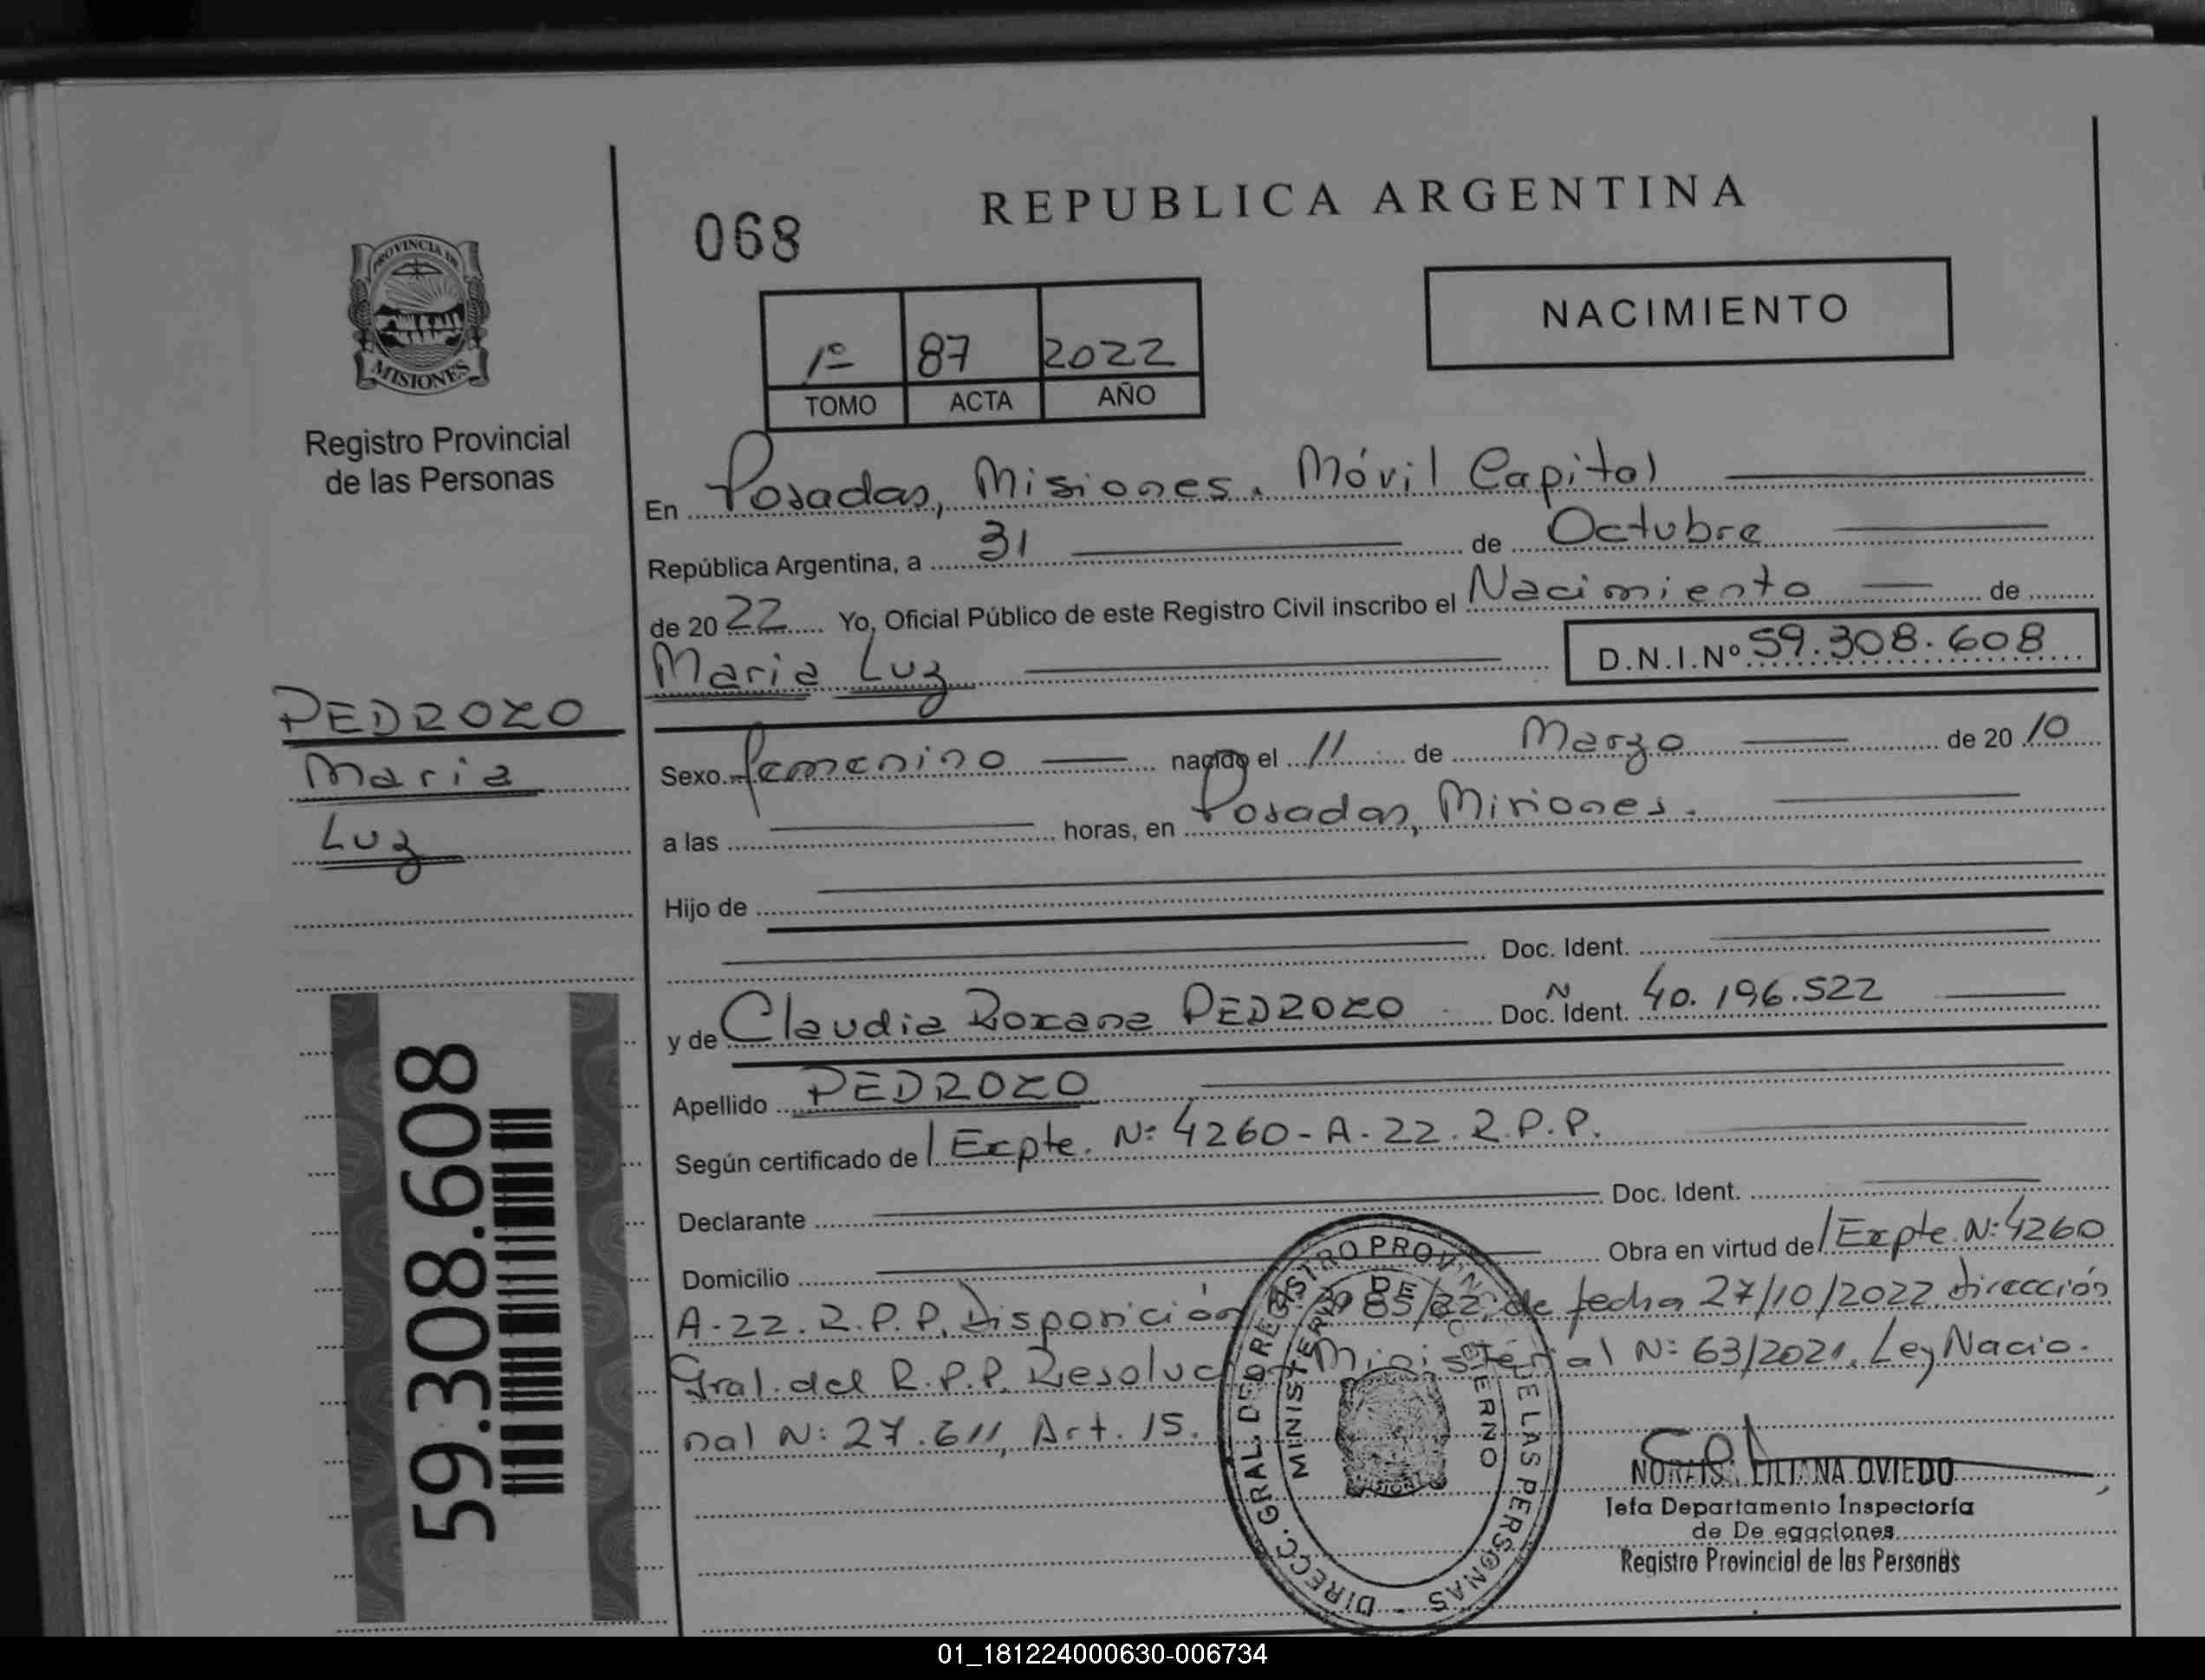 PROVINCIA DE
MISIONES
Registro Provincial
de las Personas
PEDROZO
Maria
Luz
59.308.608
068
REPUBLICA ARGENTINA
NACIMIENTO
1º 87 2022
TOMO ACTA AÑO
En Posadas, Misiones. Móvil Capital
República Argentina, a 31 de Octubre
de 2022 Yo, Oficial Público de este Registro Civil inscribo el Nacimiento de
Maria Luz D.N.I.Nº 59.308.608
Sexo femenino nacido el 11 de Marzo de 2010
a las horas, en Posadas, Misiones.
Hijo de
Doc. Ident.
y de Claudia Roxana PEDROZO Doc. Ident. N 40.196.522
Apellido PEDROZO
Según certificado de Expte. Nº 4260-A-22. R.P.P.
Declarante Doc. Ident.
Domicilio Obra en virtud de Expte. Nº 4260
A-22. R.P.P. Disposición 85/22, de fecha 27/10/2022, dirección
Gral. del R.P.P. Ministerial Nº 63/2021. Ley Nacio-
nal Nº 27.611, Art. 15.
DIRECC. GRAL. DEL REGISTRO PROVINCIAL DE LAS PERSONAS
MINISTERIO DE GOBIERNO
LILIANA OVIEDO
Jefa Departamento Inspectoría
de De egaciones
Registro Provincial de las Personas
01_181224000630-006734